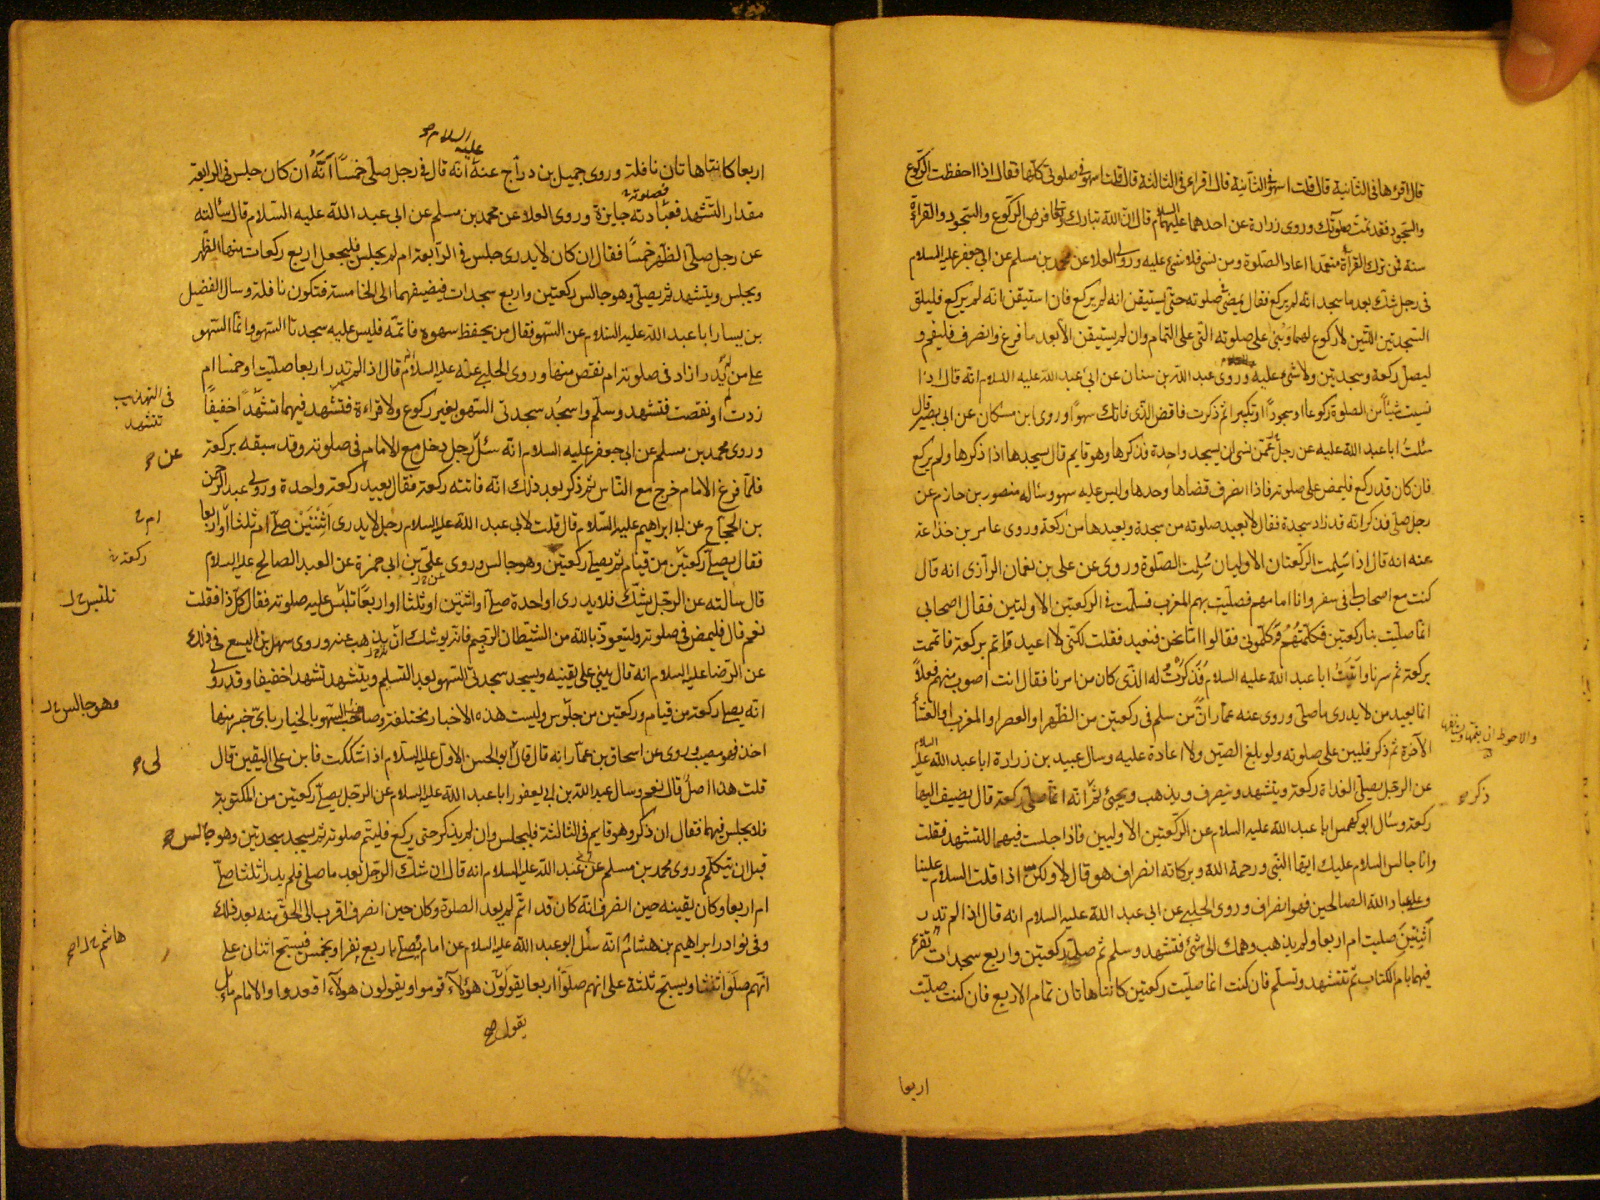 قال اقرؤها في الثانية قال قلت اسهو في الثانية قال اقرا في الثالثة قال قلت اسهو في صلوتي كلها فقال اذا حفظت الركوع
والسجود فقد تمت صلوتك وروى زرارة عن احدهما عليهما السلام قال ان الله تبارك وتعا فرض الركوع والسجود والقراءة
سنة فمن ترك القراءة متعمدا اعاد الصلوة ومن نسى فلا شئ عليه وروى العلا عن محمد بن مسلم عن ابي جعفر عليه السلام
في رجل شك بعد ما سجد انه لم يركع فقال يمضى في صلوته حتى يستيقن انه لم يركع فان استيقن انه لم يركع فليلق
السجدتين اللتين لا ركوع لهما ويبنى على صلوته التي على التمام وان لم يستيقن الا بعد ما فرغ وانصرف فليقم و
ليصل ركعة وسجدتين ولا شئ عليه وروى عبد الله بن سنان عن ابي عبد الله عليه السلام انه قال اذا
نسيت شيئا من الصلوة ركوعا او سجودا او تكبيرا ثم ذكرت فاقض الذى فاتك سهوا وروى ابن مسكان عن ابي بصير قال
سئلت ابا عبد الله عليه عن رجل عمن نسى ان يسجد واحدة فذكرها وهو قايم قال يسجدها اذا ذكرها ولم يركع
فان كان قد ركع فليمض على صلوته فاذا انصرف قضاها وحدها وليس عليه سهو وساله منصور بن حازم عن
رجل صلى فذكر انه قد زاد سجدة فقال لا يعيد صلوته من سجدة ويعيدها من ركعة وروى عامر بن خذاعة
عنه انه قال اذا سلمت الركعتان الاوليان سلمت الصلوة وروى عن على بن نعمان الرازى انه قال
كنت مع اصحاب لي في سفر وانا امامهم فصليت بهم المغرب فسلمت في الركعتين الاولتين فقال اصحابي
انما صليت بنا ركعتين فكلمتهم وكلموني فقالوا اما نحن فنعيد فقلت لكني لا اعيد واتم بركعة فاتممت
بركعة ثم سرنا واتيت ابا عبد الله عليه السلام فذكرت له الذى كان من امرنا فقال انت اصوب منهم فعلا
انما يعيد من لا يدرى ما صلى وروى عنه عمار ان من سلم في ركعتين من الظهر او العصر او المغرب او العشا
الاخرة ثم ذكر فليبن على صلوته ولو بلغ الصين ولا اعادة عليه وسال عبيد بن زرارة ابا عبد الله عليه السلام
عن الرجل يصلى الغداة ركعة ويتشهد وينصرف ويذهب ويجئ ثم ذكر انه انما صلى ركعة قال يضيف اليها
ركعة وسئل ابو كهمس ابا عبد الله عليه السلام عن الركعتين الاوليين فاذا جلست فيهما للتشهد فقلت
وانا جالس السلام عليك ايها النبي ورحمة الله وبركاته انصراف هو قال لا ولكن اذا قلت السلام علينا
وعلى عباد الله الصالحين فهو انصراف وروى الحلبى عن ابي عبد الله عليه السلام انه قال اذا لم تدر
اثنتين صليت ام اربعا ولم يذهب وهمك الى شئ فتشهد وسلم ثم صل ركعتين واربع سجدات تقرء
فيهما بام الكتاب ثم تتشهد وتسلم فان كنت انما صليت ركعتين كانتا هاتان تمام الاربع فان كنت صليت
اربعا
ذكر
عليه السلام
اربعا كانتا هاتان نافلة وروى جميل بن دراج عنه انه قال في رجل صلى خمسا انه ان كان جلس في الرابعة
مقدار التشهد فعبادته جايزة وروى العلا عن محمد بن مسلم عن ابي عبد الله عليه السلام قال سألته
فصلوته
عن رجل صلى الظهر خمسا فقال ان كان لا يدرى جلس في الرابعة ام لم يجلس فليجعل اربع ركعات منها الظهر
ويجلس ويتشهد ثم يصلى وهو جالس ركعتين واربع سجدات فيضيفهما الى الخامسة فتكون نافلة وسال الفضيل
بن يسار ابا عبد الله عليه السلام عن السهو فقال من يحفظ سهوه فاتمه فليس عليه سجدتا السهو وانما السهو
على من لم يدر ازاد في صلوته ام نقص منها وروى الحلبى عنه عليه السلام انه قال اذا لم تدر اربعا صليت او خمسا ام
زدت او نقصت فتشهد وسلم واسجد سجدتى السهو بغير ركوع ولا قراءة فتشهد فيهما تشهدا خفيفا
وروى محمد بن مسلم عن ابي جعفر عليه السلام انه سئل رجل دخل مع الامام في صلوته وقد سبقه بركعة
فلما فرغ الامام خرج مع الناس ثم ذكر بعد ذلك انه فاتته ركعة فقال يعيد ركعة واحدة وروى عبد الرحمن
بن الحجاج عن ابي ابراهيم عليه السلام قال قلت لابي عبد الله عليه السلام رجل لا يدرى اثنتين صلى ام ثلثا او اربعا
فقال يصلى ركعتين من قيام ثم يصلى ركعتين وهو جالس وروى على بن ابي حمزة عن العبد الصالح عليه السلام
قال سالته عن الرجل يشك فلا يدرى او احدة صلى او اثنتين او ثلثا او اربعا تلبس عليه صلوته فقال كل ذا فقلت
نعم قال فليمض في صلوته وليتعوذ بالله من الشيطان الرجيم فانه يوشك ان يذهب عنه وروى سهل بن اليسع في ذلك
عن الرضا عليه السلام انه قال يبني على يقينه ويسجد سجدتى السهو بعد التسلم ويتشهد تشهد خفيفا وقد روى
انه يصلى ركعة من قيام وركعتين من جلوس وليست هذه الاخبار مختلفة وصاحب السهو بالخيار باي خبر منها
اخذ فهو مصيب وروى عن اسحاق بن عمار انه قال قال ابو الحسن الاول عليه السلام اذا شككت فابن على اليقين قال
قلت هذا اصل قال نعم وسال عبد الله بن ابي يعفور ابا عبد الله عليه السلام عن الرجل يصلى ركعتين من المكتوبة
فلا يجلس فيهما فقال ان ذكر وهو قايم في الثالثة فليجلس وان لم يذكر حتى يركع فليتم صلوته ثم يسجد سجدتين وهو جالس
قبل ان يتكلم وروى محمد بن مسلم عن ابي عبد الله عليه السلام انه قال ان شك الرجل بعد ما صلى فلم يدر اثلثا صلى
ام اربعا وكان يقينه حين انصرف انه كان قد اتم لم يعد الصلوة وكان حين انصرف اقرب الى الحق منه بعد ذلك
وفي نوادر ابراهيم بن هشام انه سئل ابو عبد الله عليه السلام عن امام يصلى باربع نفر او بخمس فيسبح اثنان على
انهم صلوا ثلثا ويسبح ثلثة على انهم صلوا اربعا يقولون هؤلاء قوموا ويقولون هؤلاء اقعدوا والامام مائل
يقول
في التهذيب
تتشهد
عن
ام
ركعة
تلتبس
وهو جالس
لى
هاشم